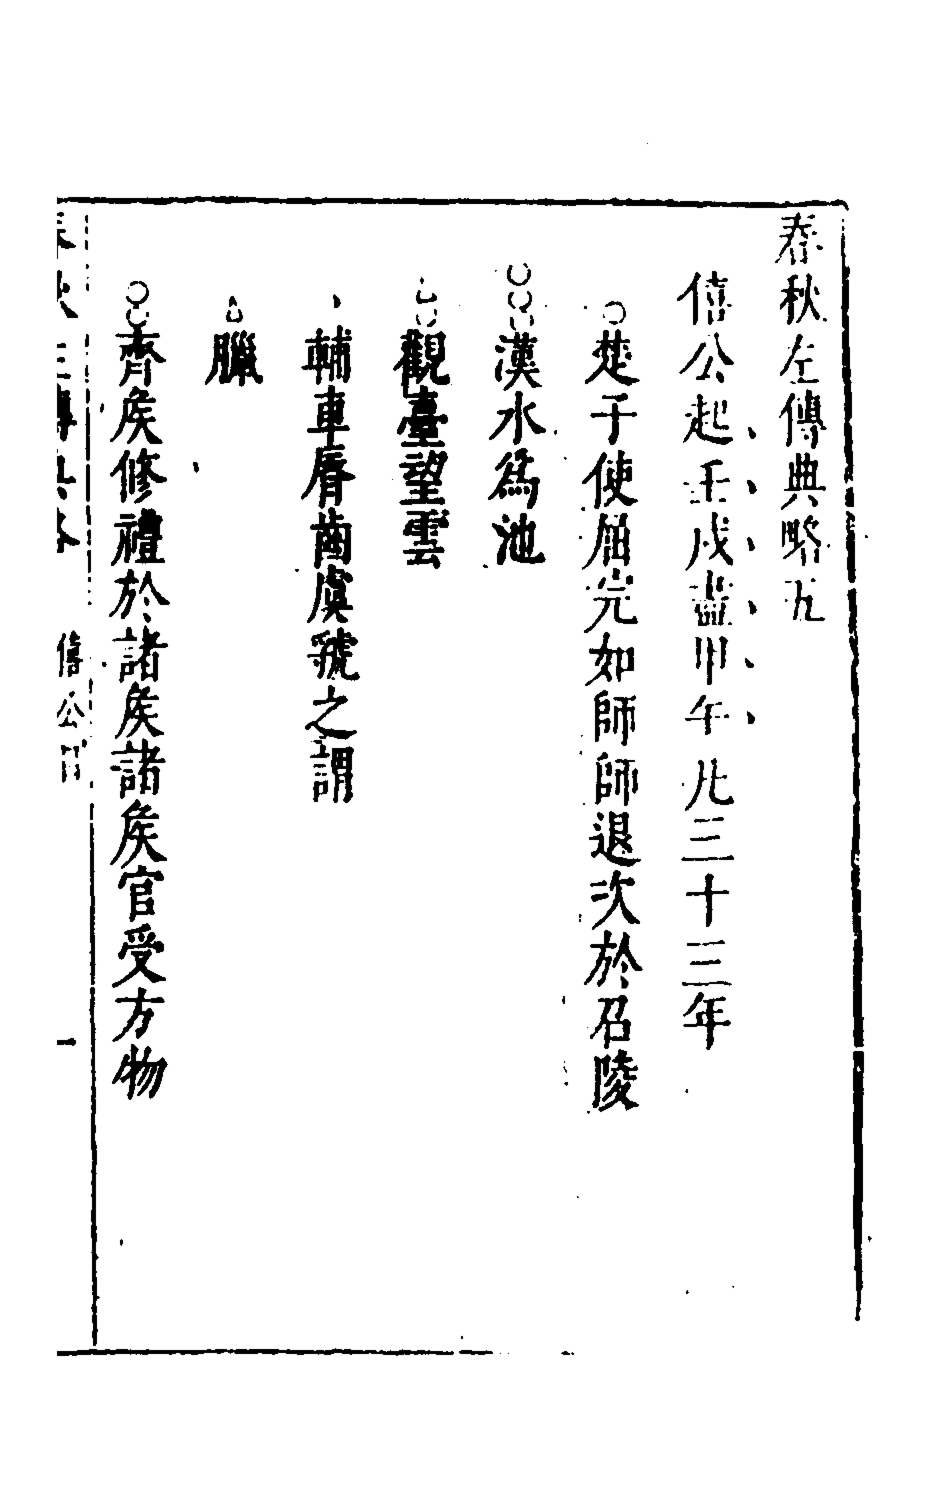 春秋左傳典略五
僖公起壬戌盡甲午凡三十三年
楚子使屈完如師師退次於召陵
漢水爲池
觀臺望雲
輔車脣齒虞虢之謂
臘
齊矦修禮於諸矦諸矦官受方物
春秋左傳典略 僖公 一